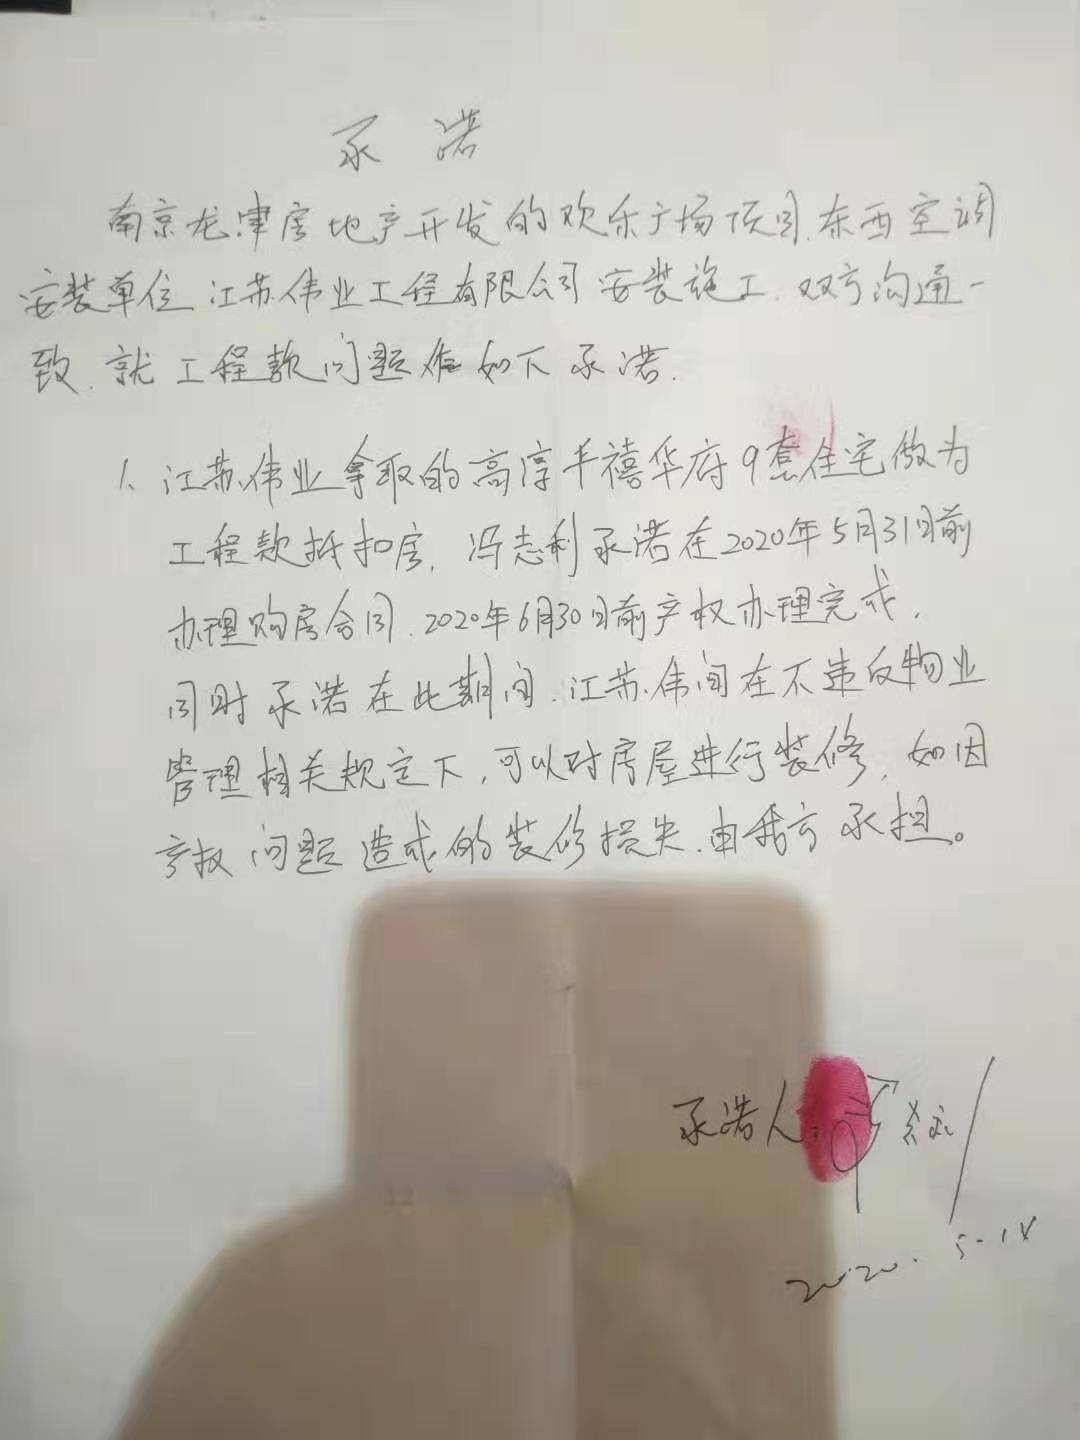 承诺
南京龙津房地产开发的欢乐广场项目.东西空调
安装单位 江苏伟业工程有限公司 安装施工.双方沟通一
致.就工程款问题 如下承诺.
1、江苏伟业拿取的高淳丰禧华府9套住宅做为
工程款抵扣房,冯志利承诺在2020年5月31日前
办理购房合同.2020年6月30日前产权办理完成,
同时承诺在此期间.江苏伟 在不违反物业
管理相关规定下,可以对房屋进行装修,如因
产权问题造成的装修损失.由我方承担。
承诺人
2020.5-18